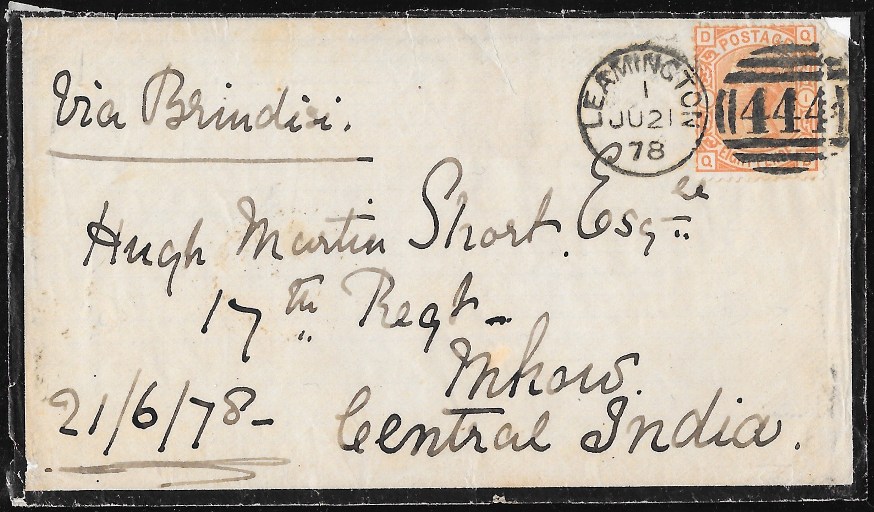 Via Brindisi.
LEAMINGTON
1
JU 21
78
D Q
POSTAGE
444
Q D
Hugh Martin Short. Esqre
17th Regt-
Mhow.
21/6/78-
Central India.